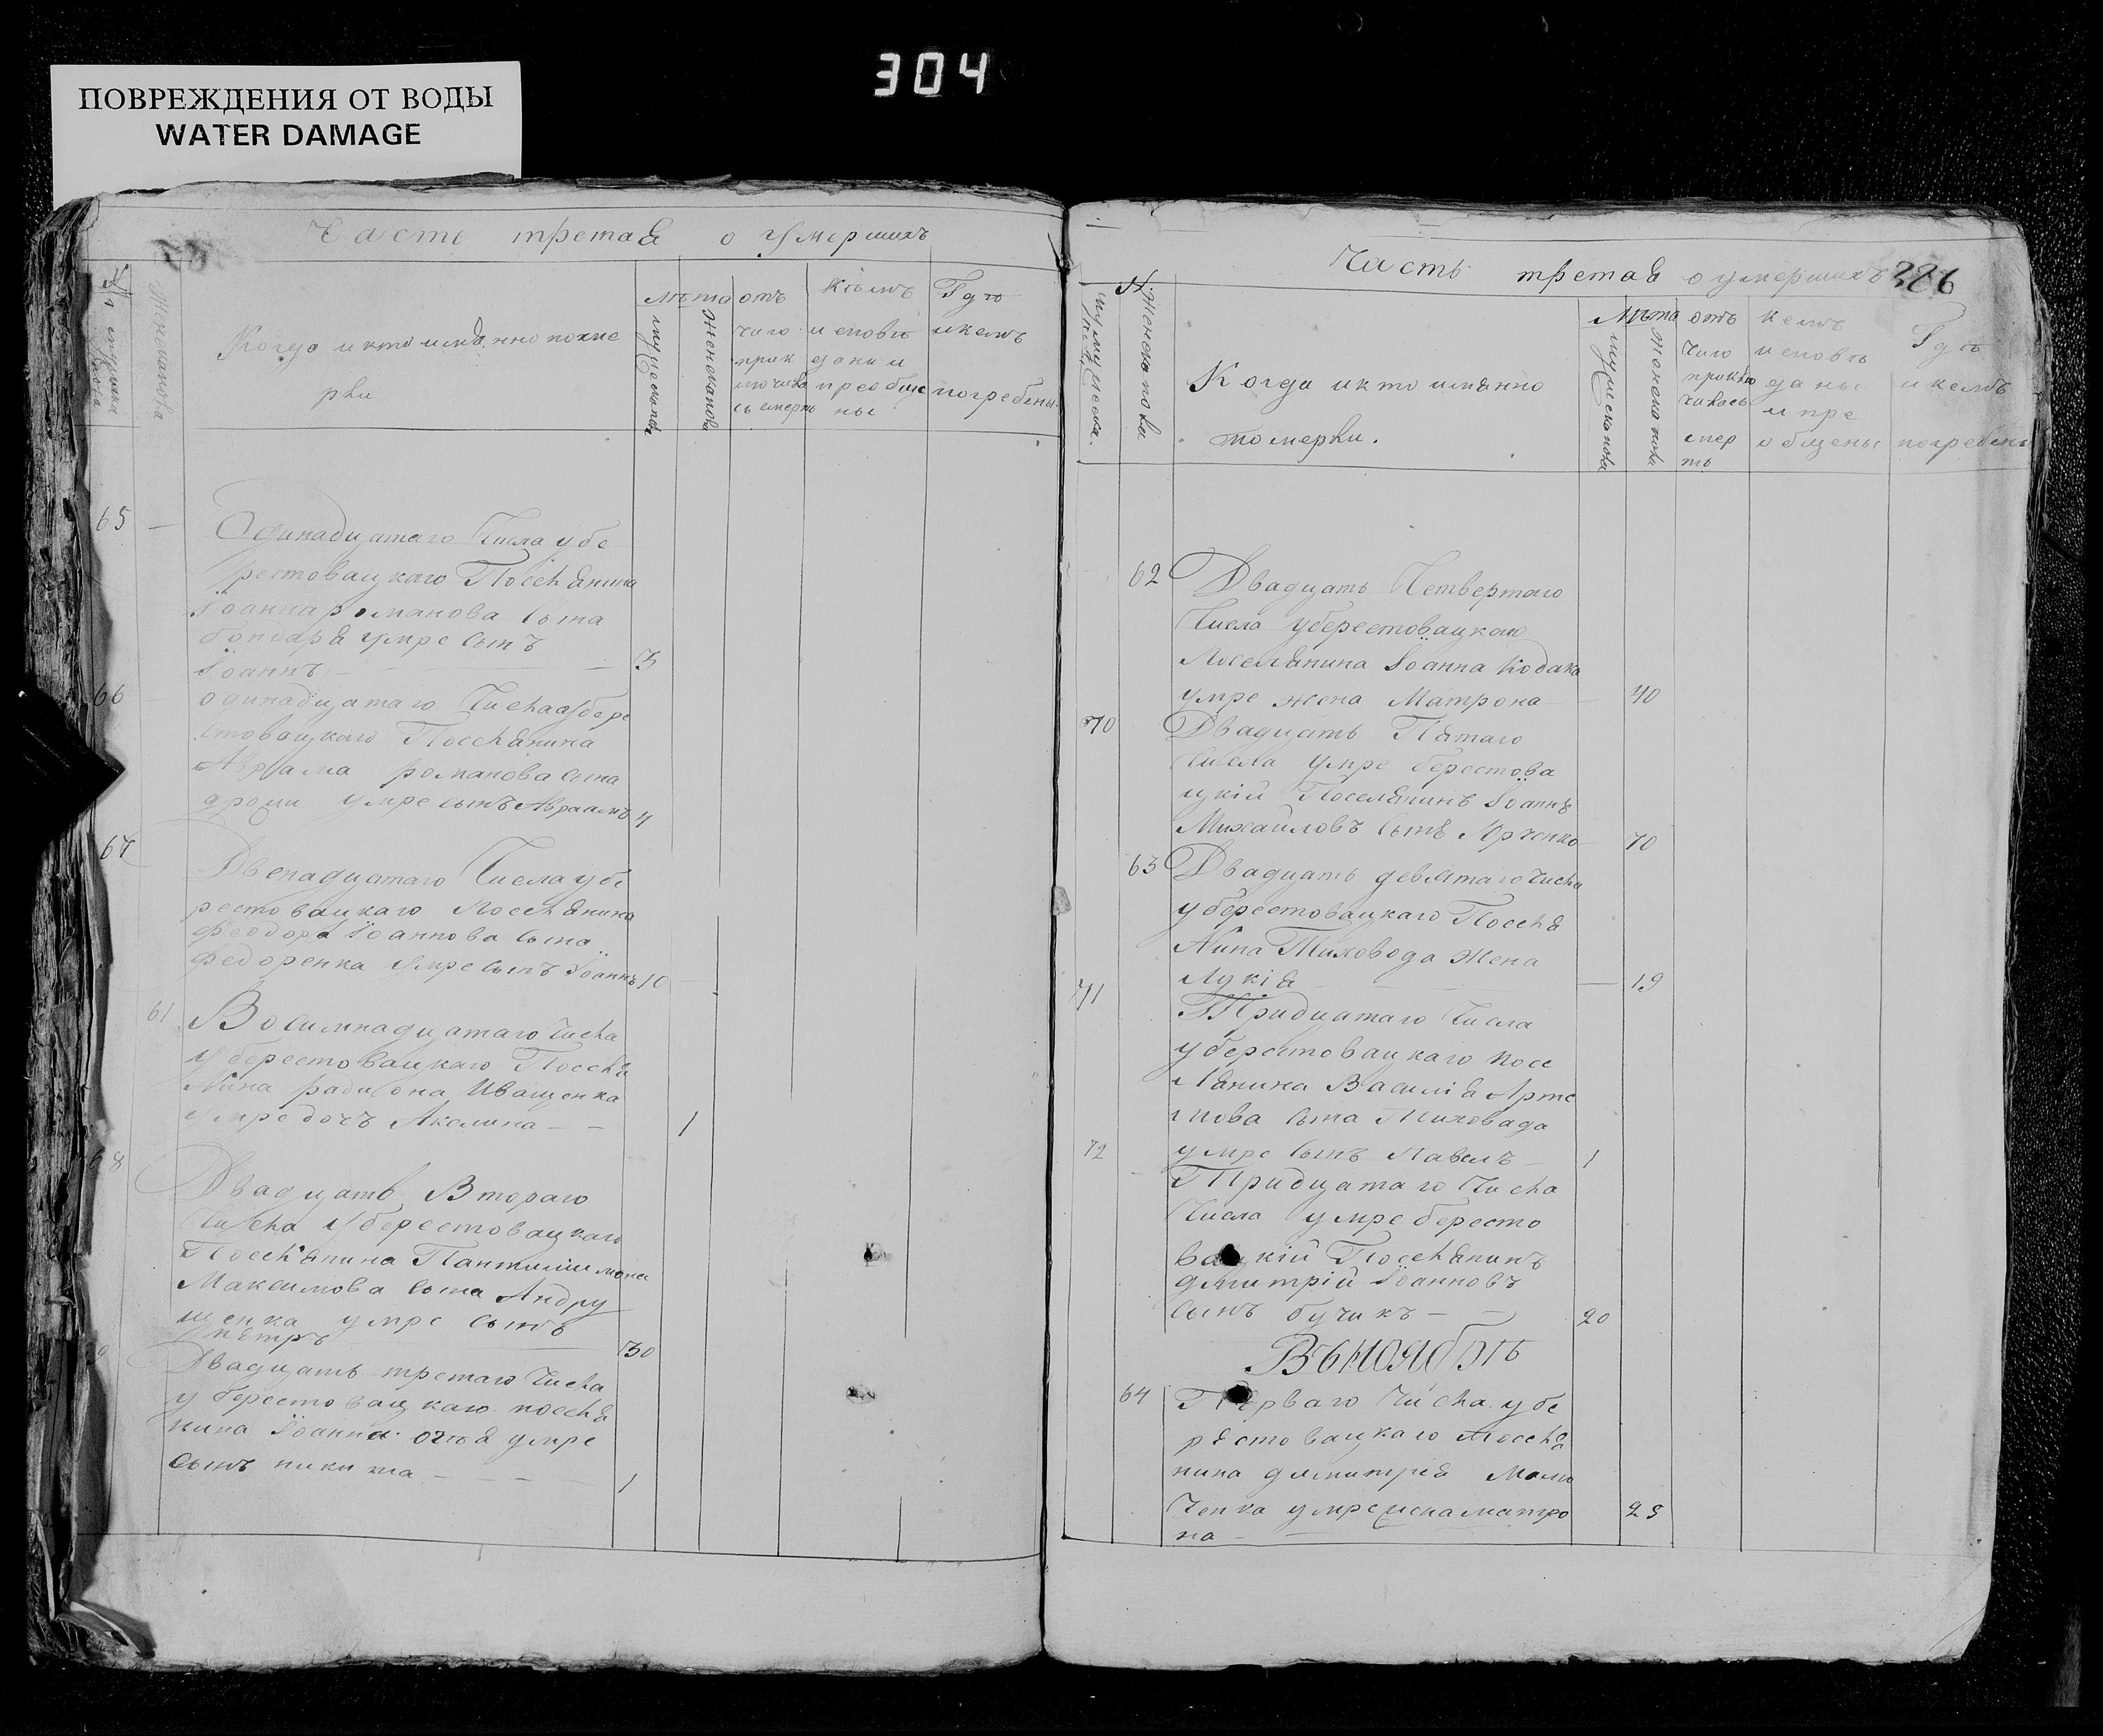 304
ПОВРЕЖДЕНИЯ ОТ ВОДЫ
WATER DAMAGE
Часть третаѧ о умершихъ
Когда и кто имѧнно поме
рли
Лѣта
мужеска пола
женска пола
отъ
чего
прик
лючила
сь смерть
кѣмъ
исповѣ
даны и
преобще
ны
Гдѣ
и кемъ
погребены
65
Одинадцатаго Числа у бе
рестовацкаго Поселѧнина
Іоанна романова сына
бондарѧ умре сынъ
Іоаннъ 3
66
одинадцатаго Числа у бере
стовацкаго Поселѧнина
Аврама романова сына
умре сынъ Авраамъ 4
67
Двенадцатаго Числа у бе
рестовацкаго Поселѧнина
феодора Іоаннова сына
федоренка умре сынъ Іоаннъ 10
61
Восимнадцатаго Числа
у берестовацкаго Поселѧ
нина радиона Иващенка
умре дочъ Акелина 1
68
Двадцать Втораго
Числа у берестовацкаго
Поселѧнина Пантилимона
Максимова сына Андру
щенка умре сынъ
пѧтръ 30
Двадцать третаго Числа
у берестовацкаго поселѧ
нина Іоанна умре
сынъ никита 1
Часть третаѧ о умершихъ 326
N.
мужеска
женска пола
Когда и кто имѧнно
померли.
Лѣта
мужеска пола
женска пола
отъ
чего
приклю
чилась
смер
ть
кемъ
исповѣ
даны
и пре
общены
Гдѣ
и кемъ
погребены
62
Двадцать Четвертаго
Числа у берестовацкаго
Поселѧнина Іоанна Кодака
умре жена Матрона 40
70
Двадцать Пѧтаго
Числа умре берестова
цкій Поселѧнинъ Іоаннъ
Михайловъ сынъ Юрченко 70
63
Двадцать девѧтаго Числа
у берестовацкаго Поселѧ
нина Тиховода жена
Лукіѧ 19
71
Тридцатаго Числа
у берестовацкаго посе
лѧнина Василіѧ Арте
мова сына Тиховада
умре сынъ Павелъ 1
72
Тридцатаго Числа
Числа умре бересто
вацкій Поселѧнинъ
дмитрій Іоанновъ
сынъ бучикъ 20
Въ Ноябрѣ
64
Перваго Числа у бе
рѧстовацкаго Поселѧ
нина дмитріѧ
ченка умре жена матро
на 25